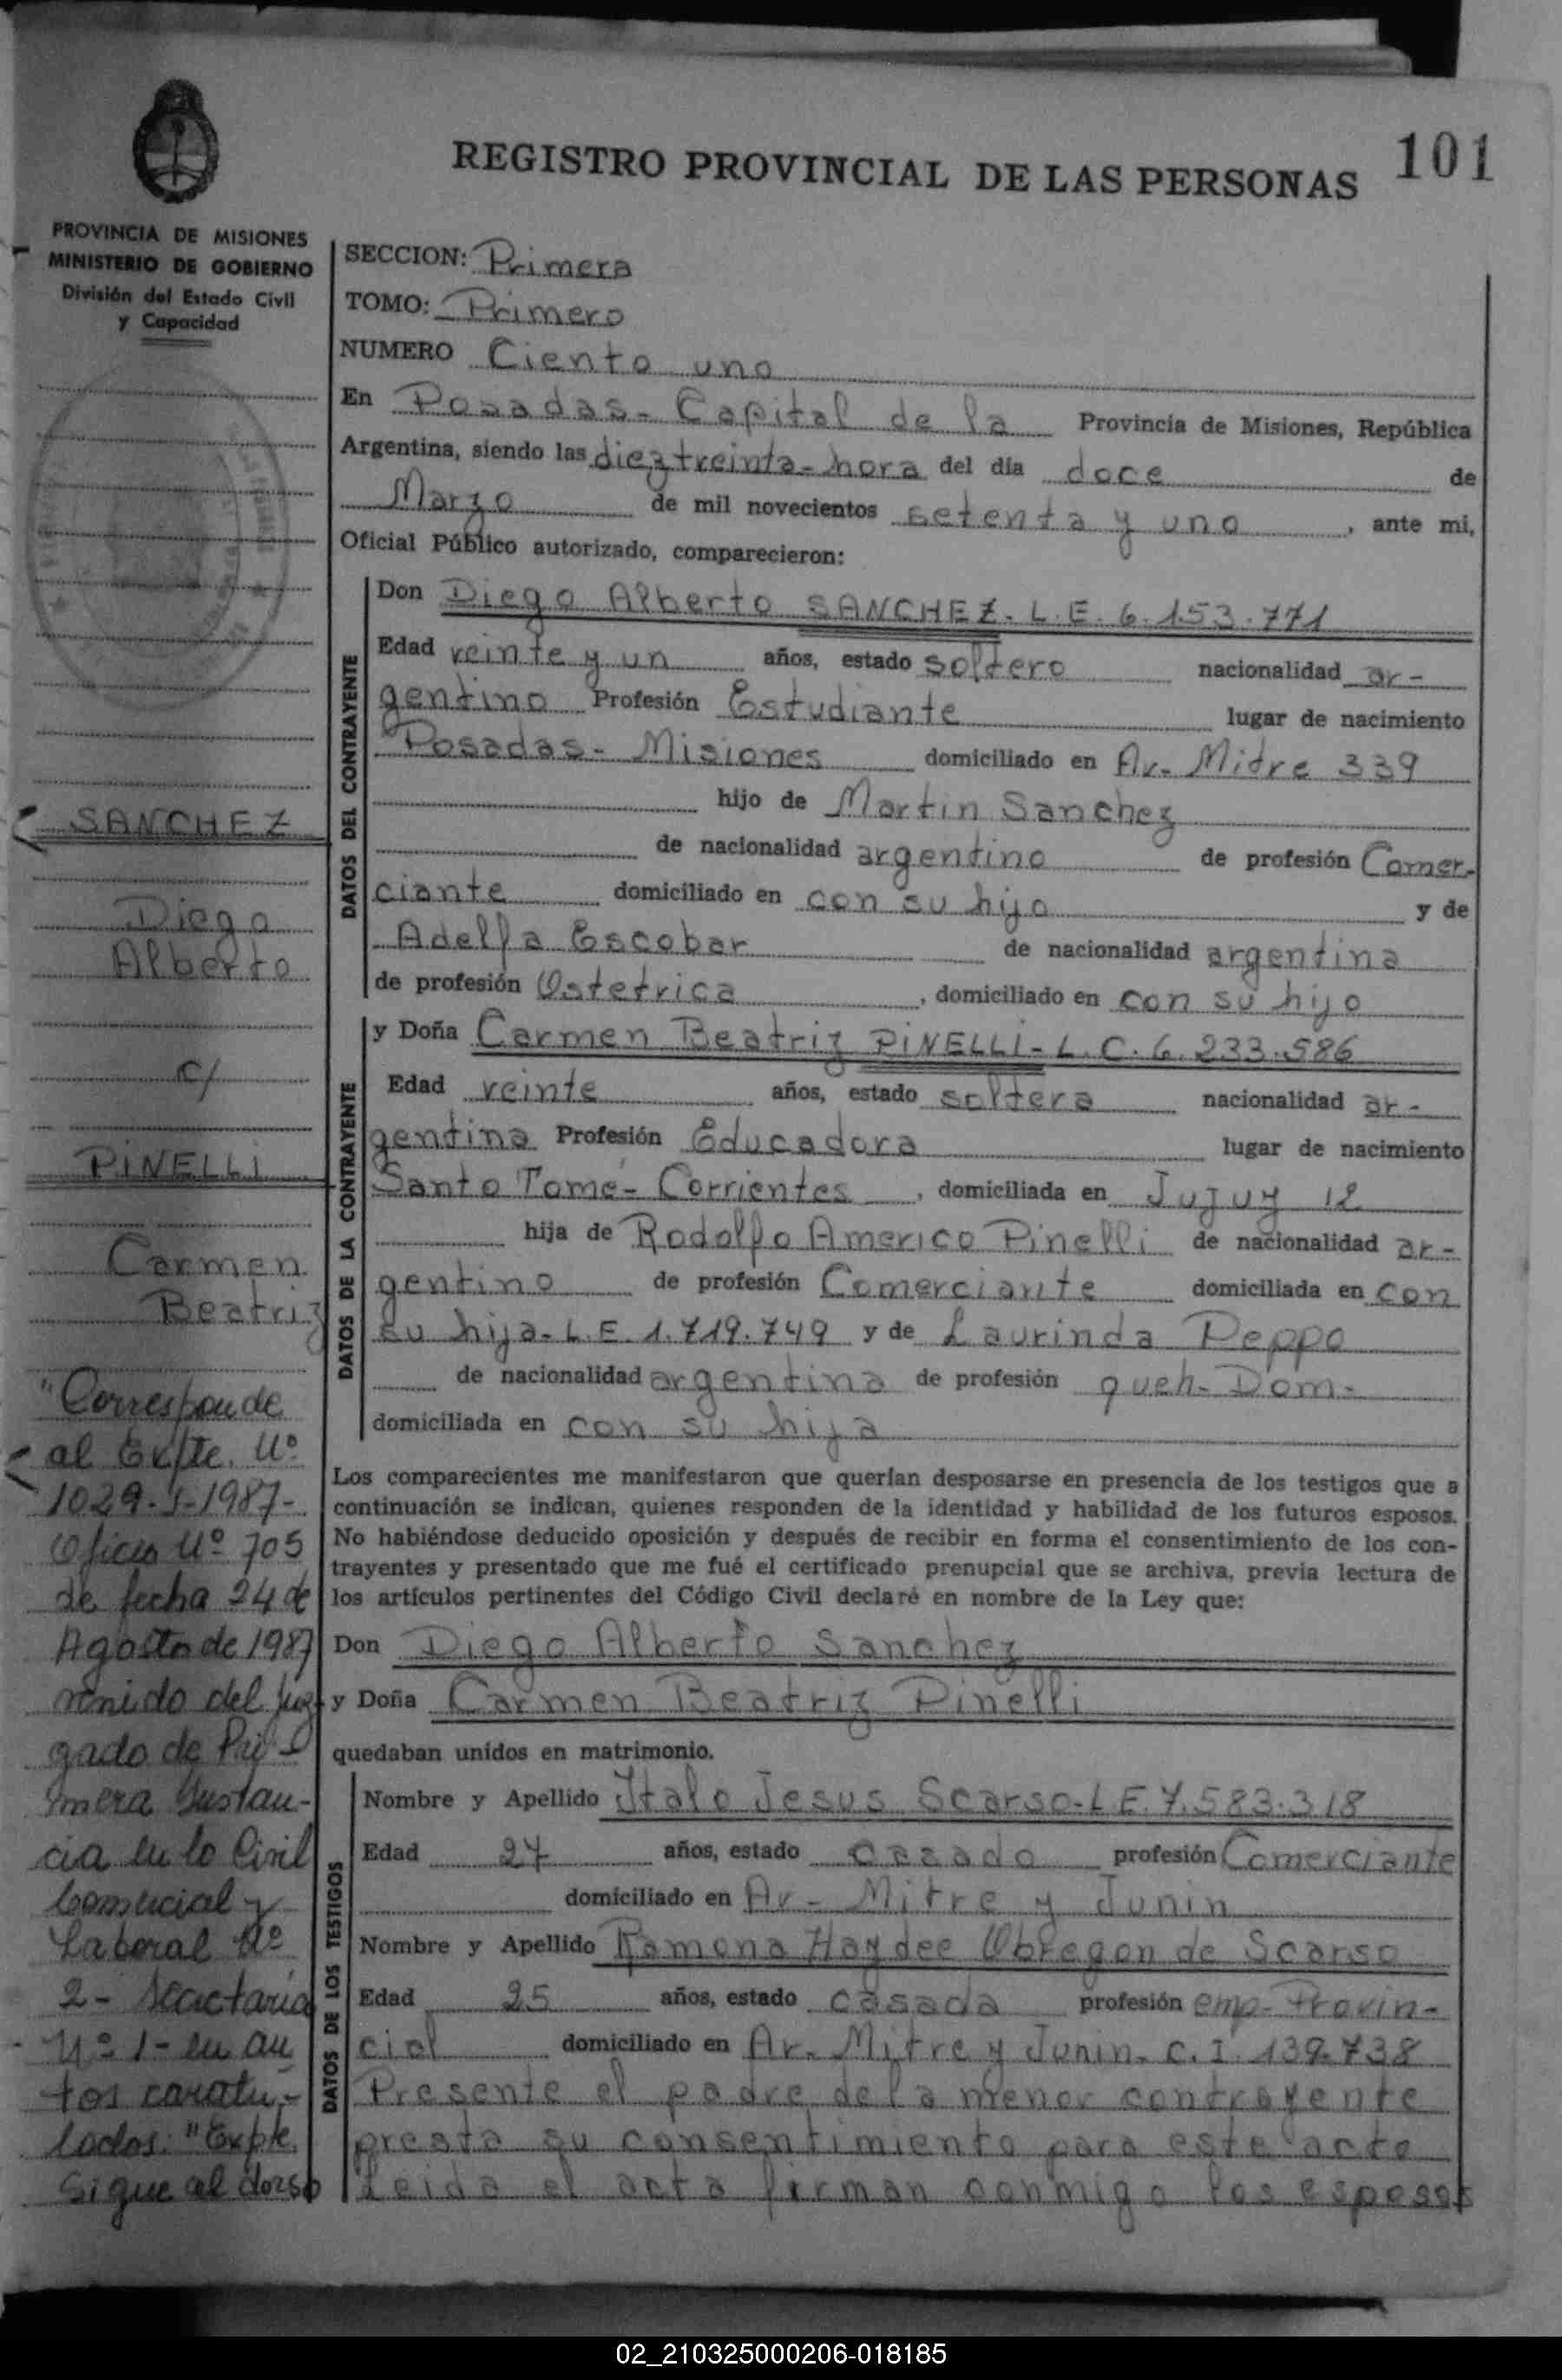 101
REGISTRO PROVINCIAL DE LAS PERSONAS
PROVINCIA DE MISIONES
MINISTERIO DE GOBIERNO
División del Estado Civil
y Capacidad
SECCION: Primera
TOMO: Primero
NUMERO Ciento uno
En Posadas - Capital de la Provincia de Misiones, República
Argentina, siendo las diez treinta - hora del día doce de
Marzo de mil novecientos setenta y uno, ante mi,
Oficial Público autorizado, comparecieron:
DATOS DEL CONTRAYENTE
Don Diego Alberto SANCHEZ - L.E. 6.153.771
Edad veinte y un años, estado soltero nacionalidad ar-
gentino Profesión Estudiante lugar de nacimiento
Posadas - Misiones domiciliado en Av. Mitre 339
hijo de Martin Sanchez
de nacionalidad argentino de profesión Comer-
ciante domiciliado en con su hijo y de
Adelfa Escobar de nacionalidad argentina
de profesión Ostetrica, domiciliado en con su hijo
DATOS DE LA CONTRAYENTE
y Doña Carmen Beatriz PINELLI - L.C. 6.233.586
Edad veinte años, estado soltera nacionalidad ar-
gentina Profesión Educadora lugar de nacimiento
Santo Tomé - Corrientes, domiciliada en Jujuy 12
hija de Rodolfo Americo Pinelli de nacionalidad ar-
gentino de profesión Comerciante domiciliada en con
su hija - L.E. 1.719.749 y de Laurinda Peppo
de nacionalidad argentina de profesión queh. Dom.
domiciliada en con su hija
Los comparecientes me manifestaron que querían desposarse en presencia de los testigos que a
continuación se indican, quienes responden de la identidad y habilidad de los futuros esposos.
No habiéndose deducido oposición y después de recibir en forma el consentimiento de los con-
trayentes y presentado que me fué el certificado prenupcial que se archiva, previa lectura de
los artículos pertinentes del Código Civil declaré en nombre de la Ley que:
Don Diego Alberto Sanchez
y Doña Carmen Beatriz Pinelli
quedaban unidos en matrimonio.
DATOS DE LOS TESTIGOS
Nombre y Apellido Italo Jesus Scarso - L.E. 7.583.318
Edad 27 años, estado casado profesión Comerciante
domiciliado en Av. Mitre y Junin
Nombre y Apellido Ramona Haydee Obregon de Scarso
Edad 25 años, estado casada profesión emp. Provin-
cial domiciliado en Av. Mitre y Junin - C.I. 139.738
Presente el padre de la menor contrayente
presta su consentimiento para este acto
Leida el acta firman conmigo los esposos
SANCHEZ
Diego
Alberto
c/
PINELLI
Carmen
Beatriz
"Corresponde
al Expte. Nº
1029-S-1987-
Oficio Nº 705
de fecha 24 de
Agosto de 1987
venido del Juz-
gado de Pri-
mera Instan-
cia en lo Civil
Comercial y
Laboral Nº
2 - Secretaría
Nº 1 - en au
tos caratu-
lados: "Expte.
Sigue al dorso
02_210325000206-018185